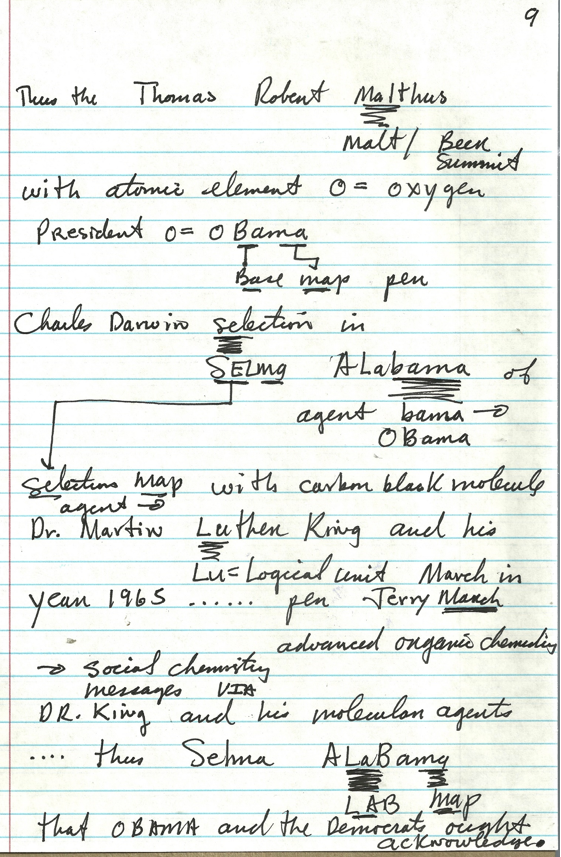 9
Thus the Thomas Robert Malthus
Malt / Beer
Summit
with atomic element O = Oxygen
President O = OBama
Base map pen
Charles Darwin selection in
SELma ALabama of
agent bama →
OBama
selections map with carbon black molecule
agent →
Dr. Martin Luther King and his
Lu = Logical unit March in
year 1965 ...... pen Jerry March
advanced organic chemistry
→ Social chemistry
messages VIA
DR. King and his molecular agents
.... thus Selma ALaBama
LAB map
that OBAMA and the Democrats ought
acknowledge.